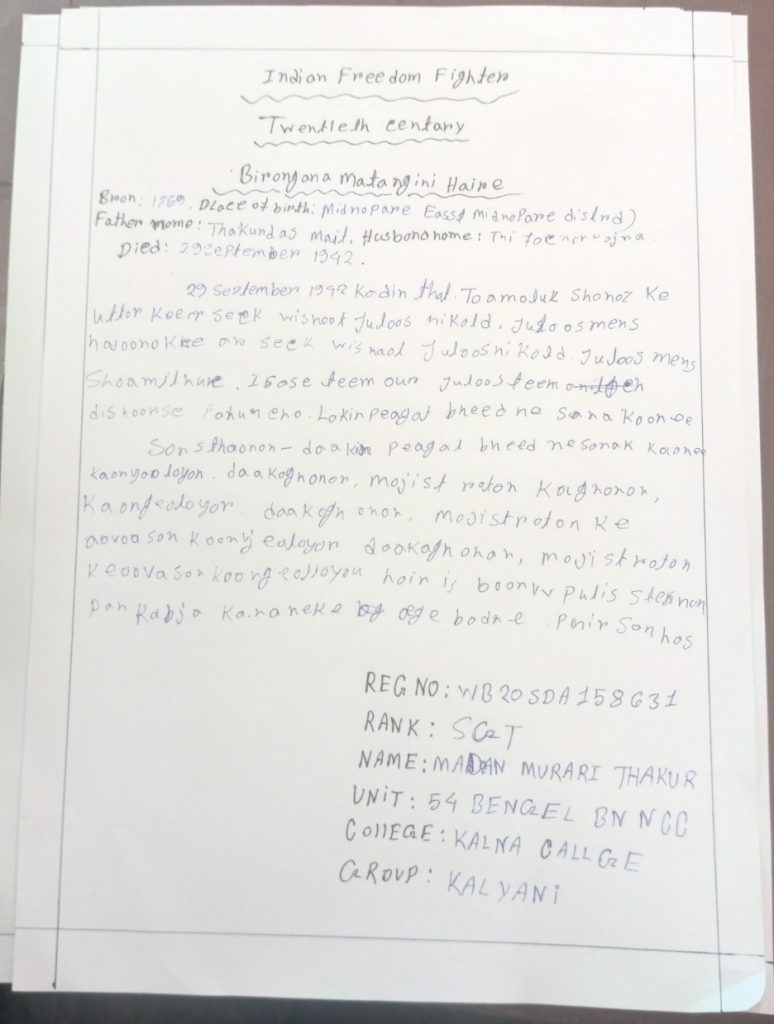 Indian Freedom Fighter
Twentleth centary
Birongana Matangini Haire
Bron: 1869. Dlace of birth: Midnopare Easst Midnopare distrid)
Father mome: Thakundas Mait, Husbond home:
Died: 29 September 1942.
29 September 1942 Kadin that. To amoluk Shonoz Ke
uttor Keer seek wishoot Juloos nikold. Juloos mens
seek Juloos nikold. Juloos mens
Shoamilhure. I sase teem our Juloos teem
dishoorse Pahumeno. Lokin peagal bheed ne sana koonee
Sansthaonon - daakin peagal bheed ne sonak
kaonyao loyon. daakoghonor, mojist raton Koghonon,
Kaonfealoyor. daakogh onon, mojistroton ke
aovoason koonjealoyon daakoghonan, mojistroton
keoovason hain is boonvv pulis steanon
Pan Kabja kananeke age badne. Phir San has
REG NO: WB20SDA158631
RANK: SGT
NAME: MADAN MURARI THAKUR
UNIT: 54 BENGEL BN NCC
COllEGE: KALNA CALLGE
GROUP: KALYANi